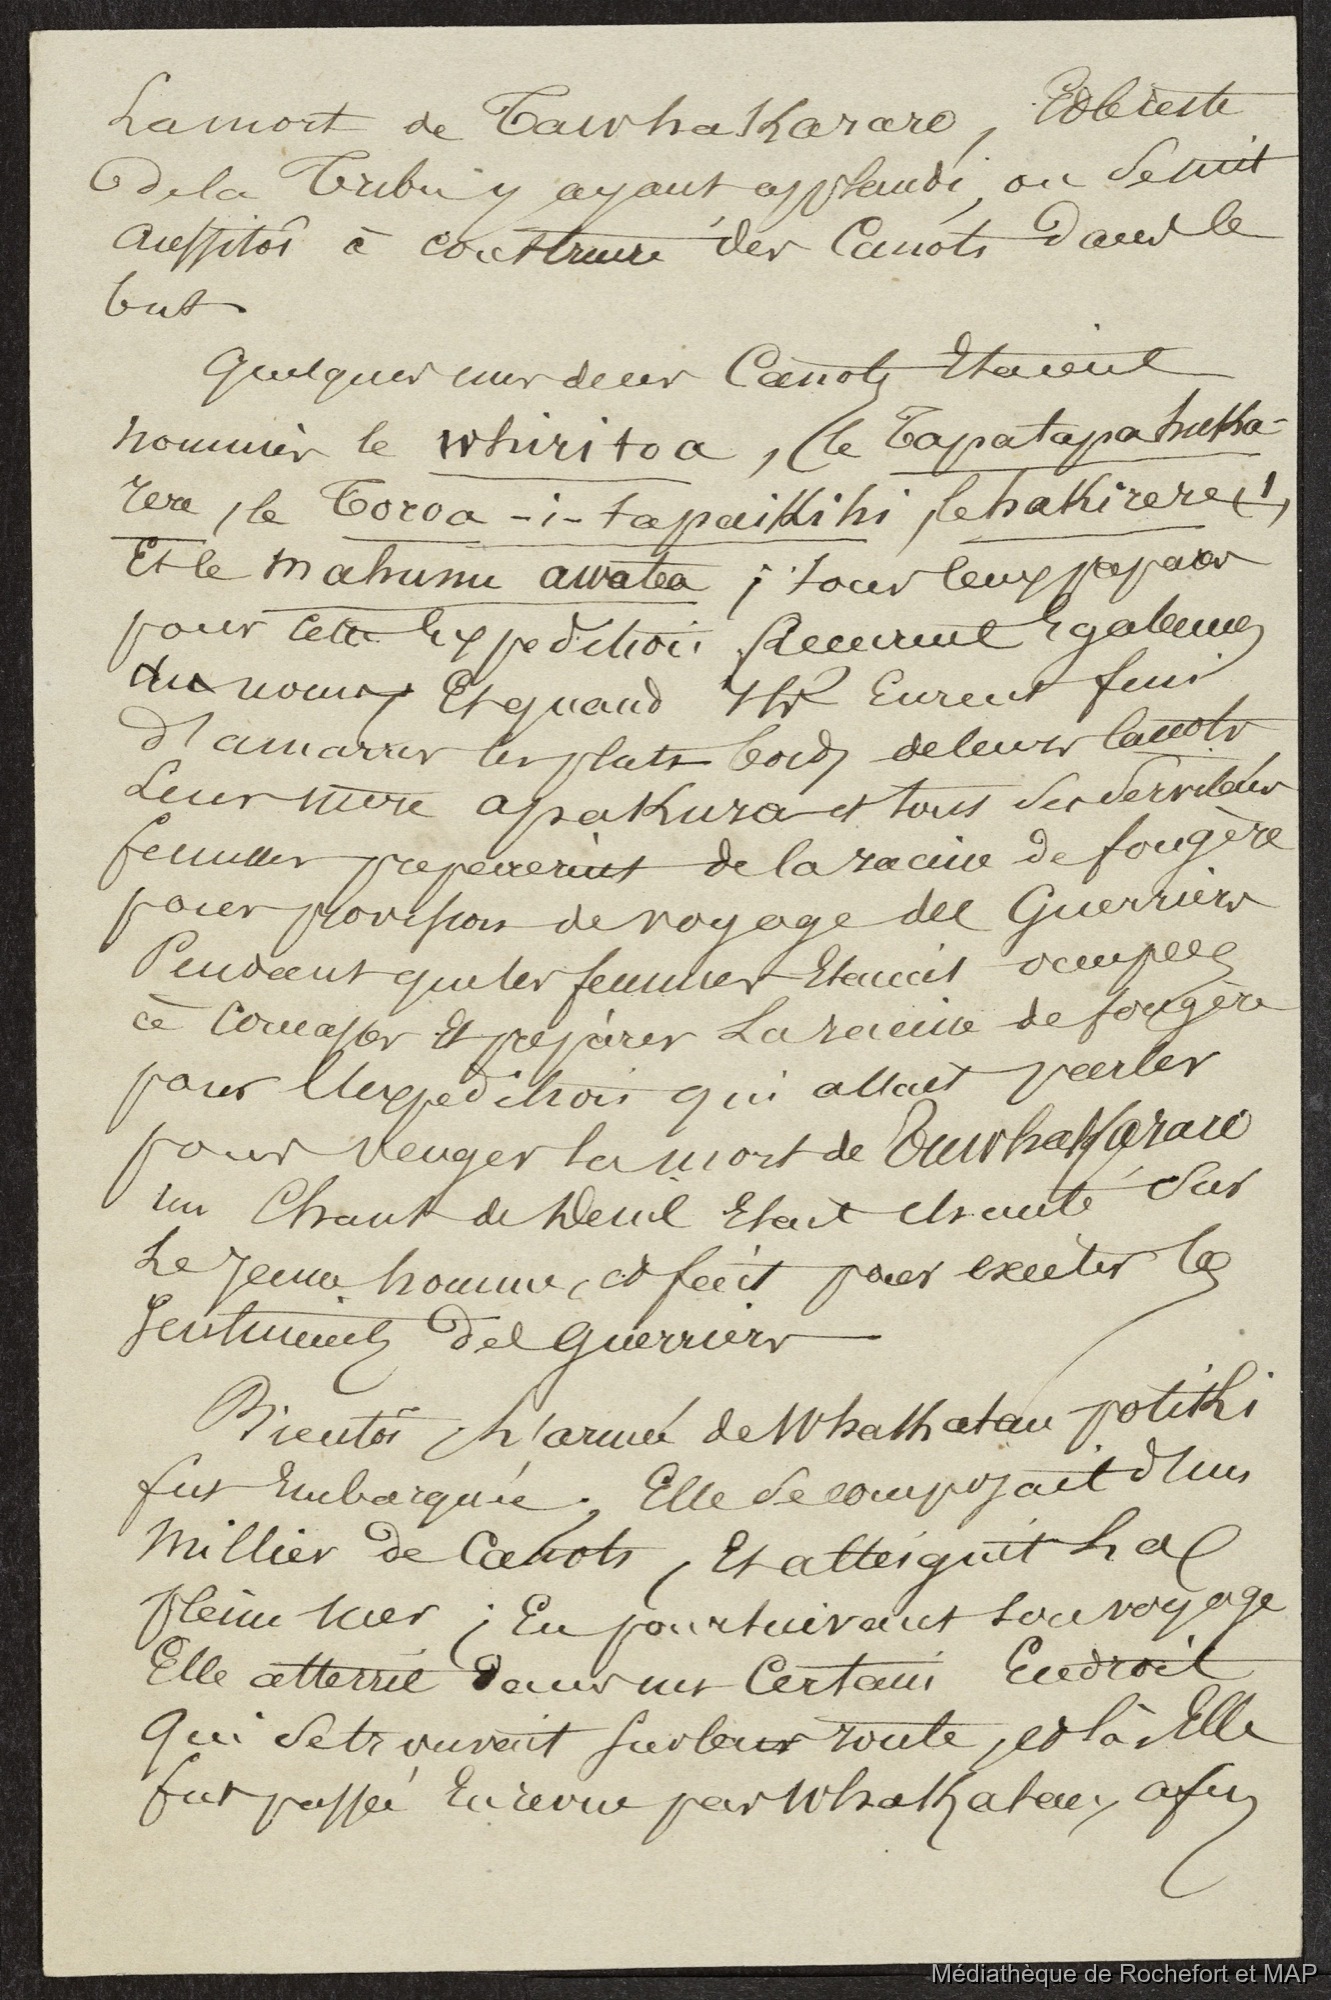 La mort de TawhaKararo, Et le reste
de la Tribu y ayant applaudi, on se mit
aussitôt à construire des Canots dans le
but
Quelques uns de ces Canots Etaient
nommés le whiritoa, le Tapatapahuka-
rere, le Toroa-i-tapaiKihi, le haKirere (1)
Et le mahunu awatea ; tous leurs pagaies
pour cette Expedition Recurent Egalement
du noms, Et quand Ils Eurent fini
d'amarrer les plats bords de leurs Canots
Leur mère apaKura et tous ses serviteurs
femelles preparerent de la racine de fougère
pour provision de voyage des Guerriers
Pendant que les femmes Etaient occupées
à Concasser Et préparer La racine de fougère
pour l'Expedition qui allait partir
pour venger la mort de TuwhaKararo
un Chant de Deuil Etait chanté Sur
Le Jeune homme, et fait pour exciter les
Sentiments des guerriers
Bientôt, L'armée de WhaKatau potiKi
fut Embarquée, Elle se composait d'un
Millier de Canots, Et atteignit La
pleine mer ; En poursuivant son voyage
Elle atterrit dans un Certain Endroit
Qui se trouvait sur leur route, et là Elle
fut passée En revue par WhaKatau, afin
Médiathèque de Rochefort et MAP